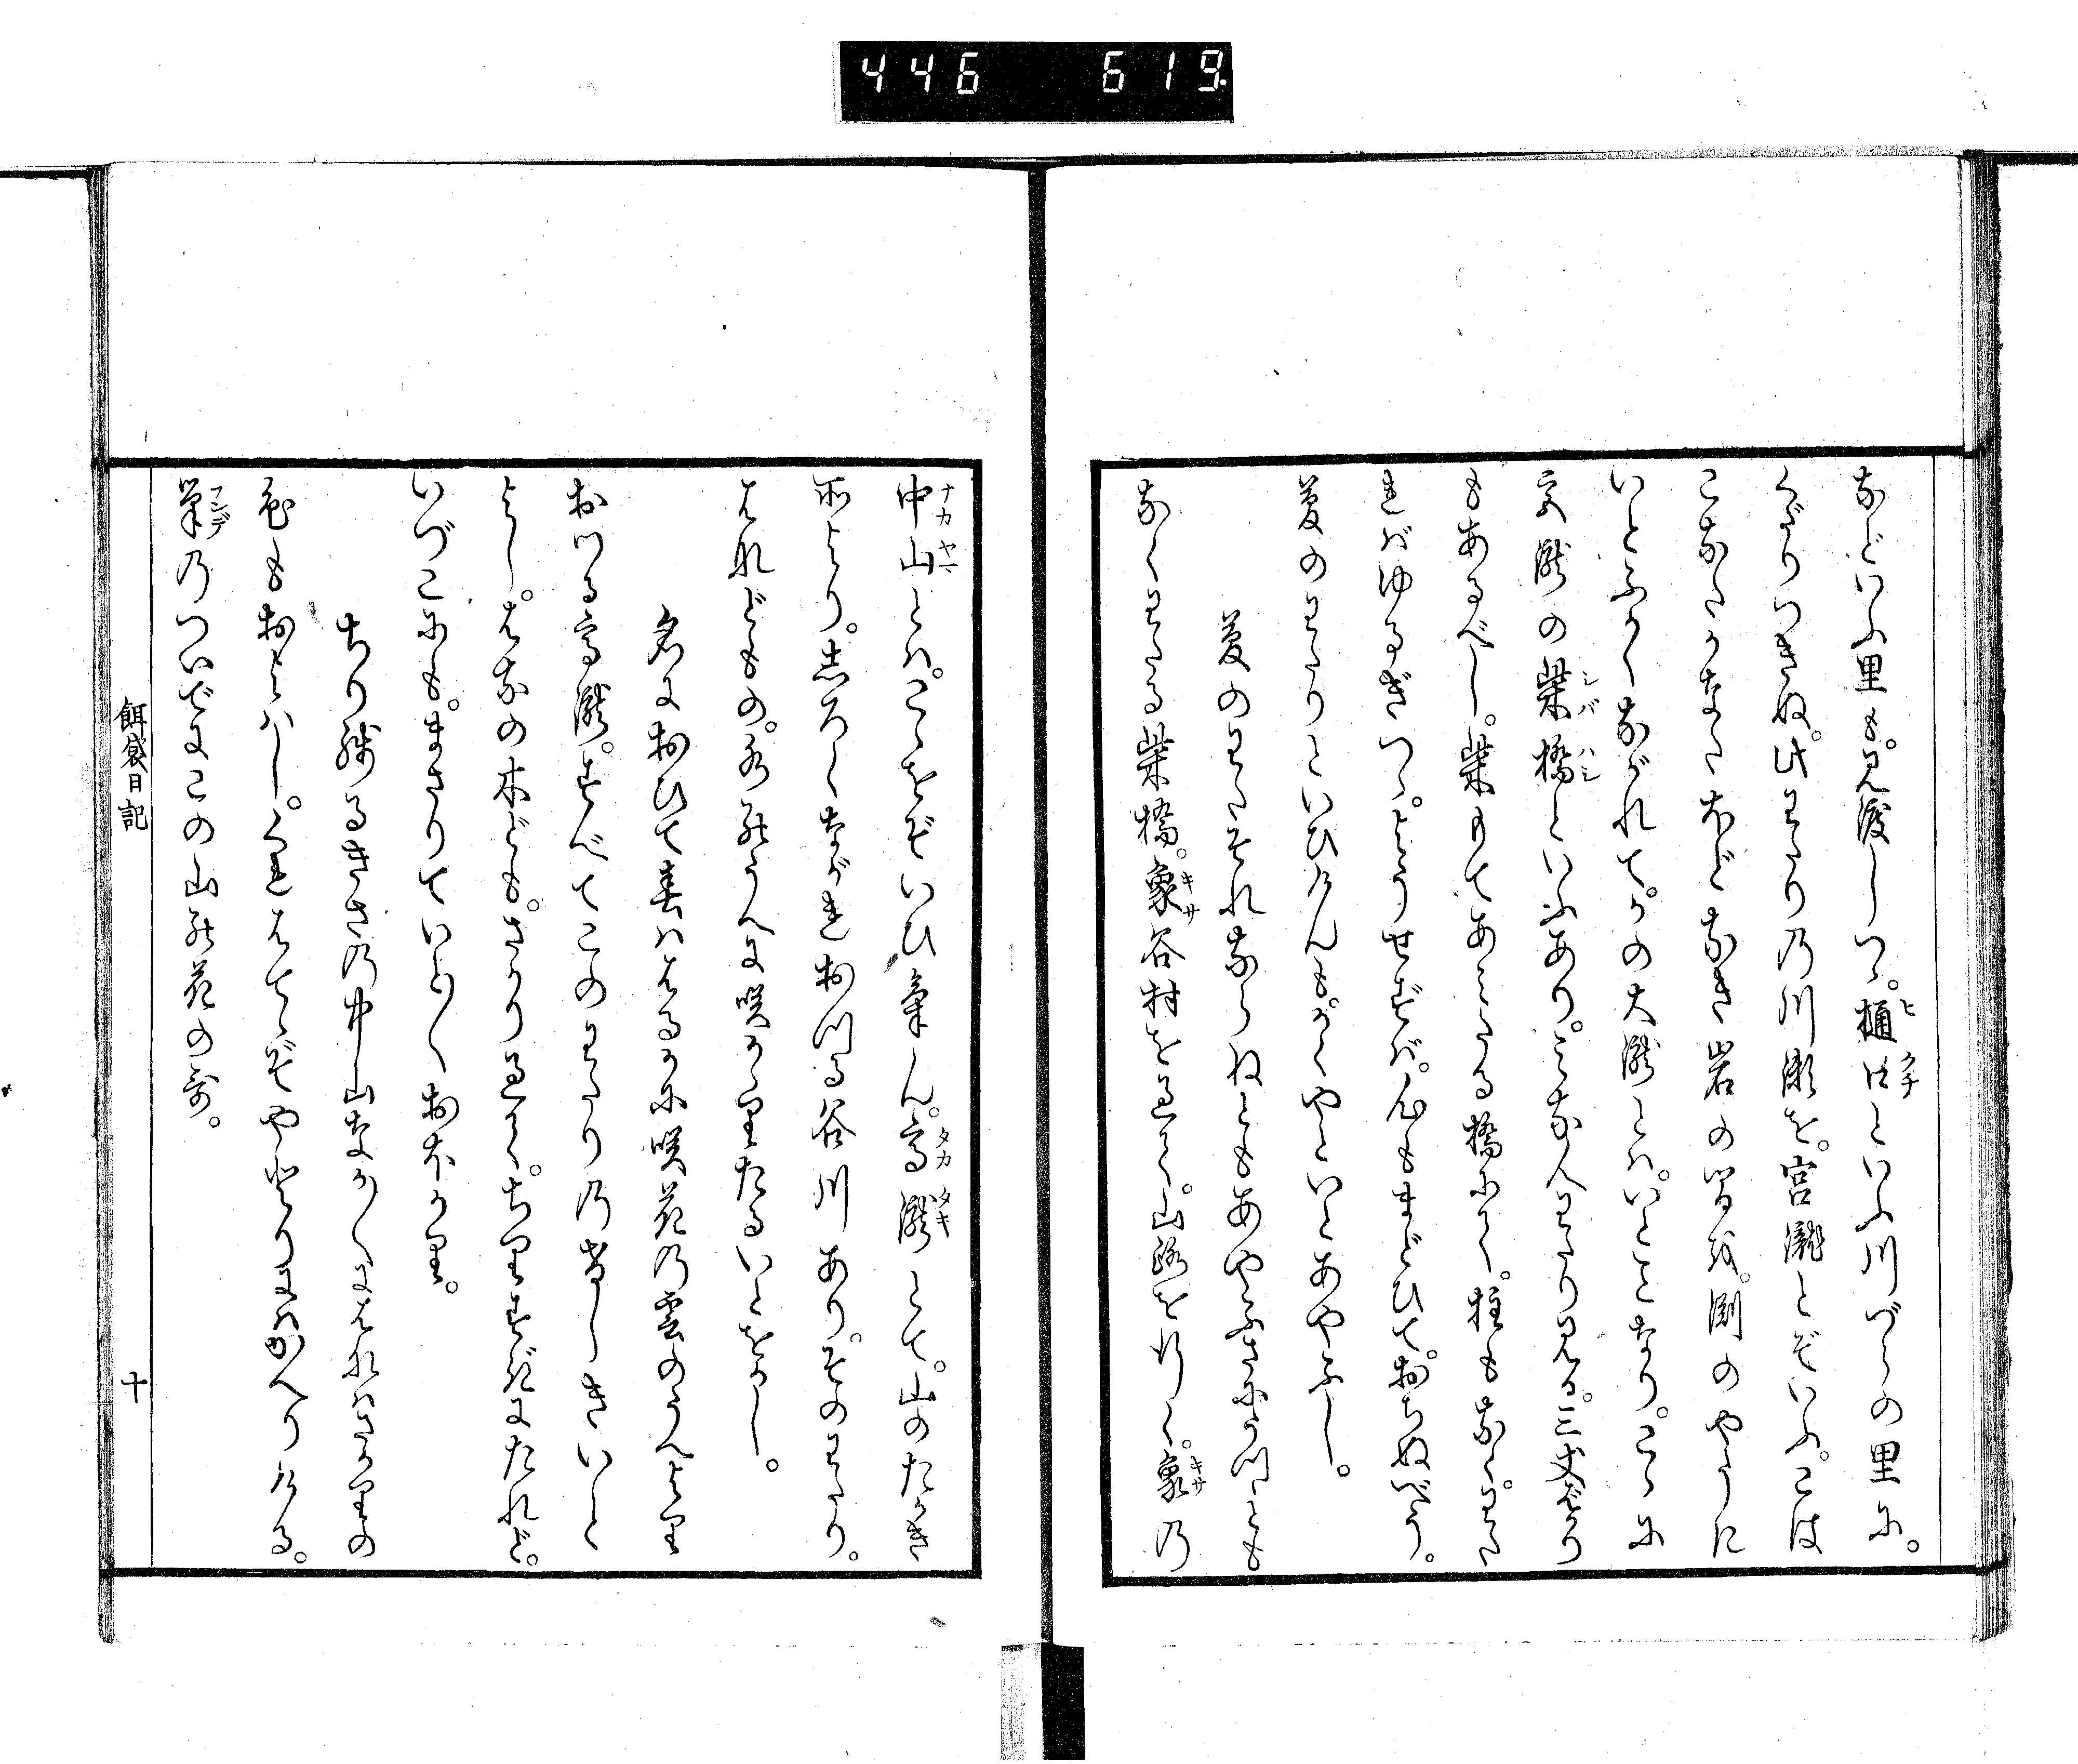 446 619
などいふ里も。見渡しつゝ。樋口といふ川づらの里に。
くだりつきぬ。此わたりの川瀬を。宮瀧とぞいふ。こは
こなたかなたなどなき岩の間を。淵のやうに
いとふかくながれて。かの大瀧とは。いとことなり。こゝに
宮瀧の柴橋といふあり。こなたへわたり見る。三丈ばかり
もあるべし。柴もてあみたる橋にて。柱もなく。わた
ればゆるぎつゝ。ようせずば。心もまどひて。おちぬべう。
夢のわたりといひけんも。かくやといとあやふし。
夢のわたそれならねともあやふさにうつゝとも
なくわたる柴橋。象谷村を過て。山路を行く。象の
中山とは。こゝをぞいひけん。高瀧とて。山のたかき
所より。しろくながれおつる谷川あり。そのわたり。
はれどもの。水のうへに咲かゝりたるいとをかし。
名におひて春ははるかに咲花の雲のうへより
おつる高瀧。すべてこのわたりのけしきいと
よし。はなの木ども。さかり過て。ちりすぎにたれど。
いづこにも。まさりていと〳〵おほかり。
ちり残るきさの中山なか〳〵にはなはさかりの
色もおよばし。くれはてゝぞやどりにはかへりける。
筆のついでにこの山の花の哥。
餌袋日記
十